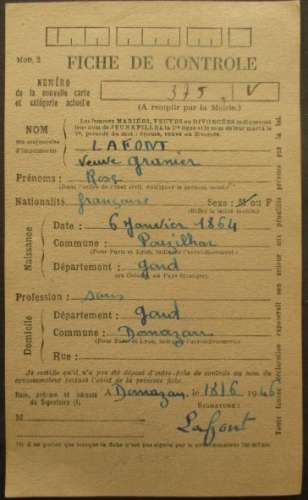 Mod. 2
FICHE DE CONTROLE
NUMÉRO
de la nouvelle carte
et catégorie actuelle
375. V
(A remplir par la Mairie.)
Les femmes MARIÉES, VEUVES ou DIVORCÉES indiqueront
leur nom de JEUNE FILLE à la 1re ligne et le nom de leur mari à la
2e, précédé du mot : épouse, veuve ou divorcée.
NOM
en majuscules
d'imprimerie
LAFONT
Veuve Granier
Prénoms : Rose
(Dans l'ordre de l'état civil, souligner le prénom usuel.)
Nationalité française Sexe : M ou F
(Biffer la lettre inutile.)
Naissance
Date : 6 Janvier 1864
Commune : Pouzilhac
(Pour Paris et Lyon, indiquer l'arrondissement.)
Département : Gard
(ou Colonie ou Pays étranger).
Profession : sans
Domicile
Département : Gard
Commune : Domazan
(Pour Paris et Lyon, indiquer l'arrondissement.)
Rue :
Je certifie qu'il n'a pas été déposé d'autre fiche de contrôle au nom du
consommateur faisant l'objet de la présente fiche.
Nom, prénom et adresse
du Signataire (1).
A Domazan, le 18/6 1946
SIGNATURE :
M
Lafont
Toute fausse déclaration exposerait son auteur aux pénalités prévues par la loi.